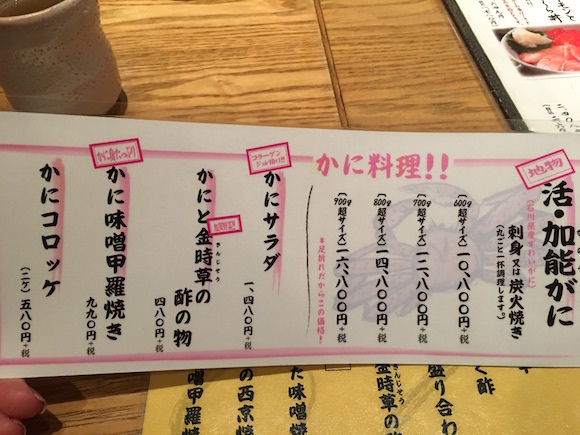 かに料理!!
地物
活・加能がに
(石川県産ずわいがに)
刺身又は炭火焼き
(丸ごと一杯調理します。)
(600g超サイズ)一〇、八〇〇円+税
(700g超サイズ)一二、八〇〇円+税
(800g超サイズ)一四、八〇〇円+税
(900g超サイズ)一六、八〇〇円+税
*足折れだからこの価格!
コラーゲン
かにサラダ
一、四八〇円+税
かにと金時草の
きんじそう
酢の物
四八〇円+税
かに身たっぷり
かに味噌甲羅焼き
九九〇円+税
かにコロッケ
(二ケ)五八〇円+税
く酢
盛り合わ
きんじそう
金時草の
た味噌
の西京焼
噌甲羅焼